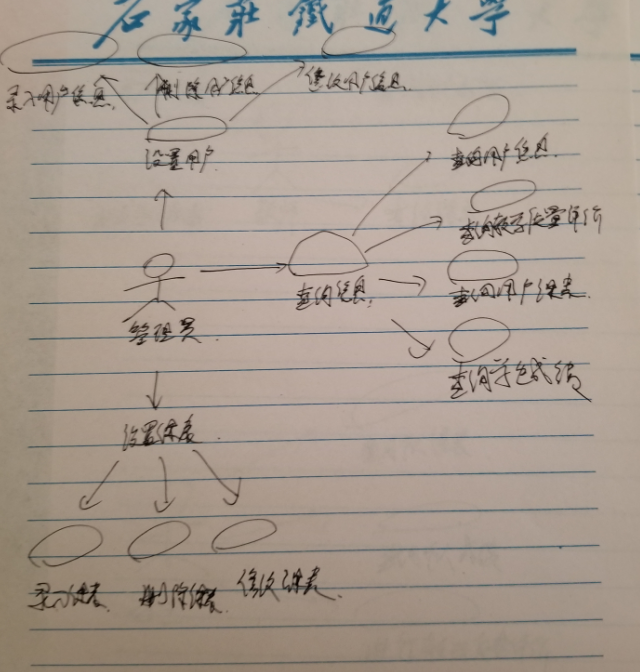 石家莊鐵道大學
录入用户信息 删除用户信息 修改用户信息
设置用户
查询用户信息
查询教学质量评价
查询信息
查询用户课表
管理员
查询学生成绩
设置课表
录入课表 删除课表 修改课表